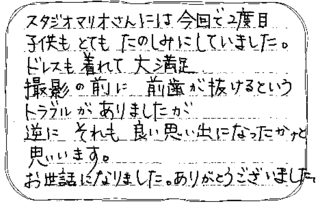 スタジオマリオさんには今回で2度目
子供もとてもたのしみにしていました。
ドレスも着れて大満足
撮影の前に前歯が抜けるという
トラブルがありましたが
逆にそれも良い思い出になったかなと
思いいます。
お世話になりました。ありがとうございました。